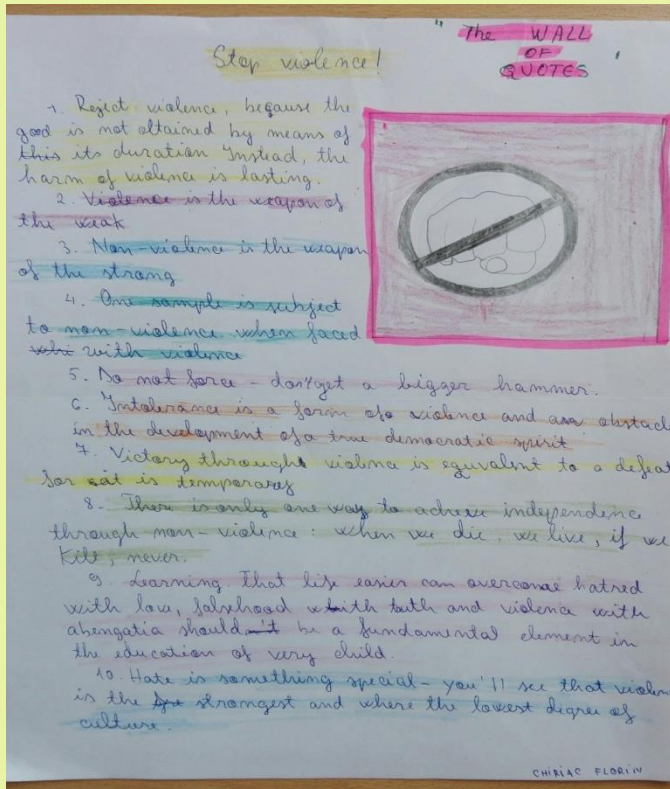 "The WALL
OF
QUOTES"
Stop violence!
1. Reject violence, because the
good is not attained by means of
this its duration Instead, the
harm of violence is lasting.
2. Violence is the weapon of
the weak
3. Non-violence is the weapon
of the strong
4. One sample is subject
to non-violence when faced
with violence
5. Do not force - don't get a bigger hammer.
6. Intolerance is a form of violence and an obstacle
in the development of a true democratic spirit
7. Victory through violence is equivalent to a defeat
for it is temporary
8. There is only one way to achieve independence
through non-violence: when we die, we live, if we
kill, never.
9. Learning that life easier can overcome hatred
with love, falsehood with truth and violence with
abengatia should be a fundamental element in
the education of very child.
10. Hate is something special - you'll see that violen
is the strongest and where the lowest degree of
culture.
CHIRIAC FLORIN